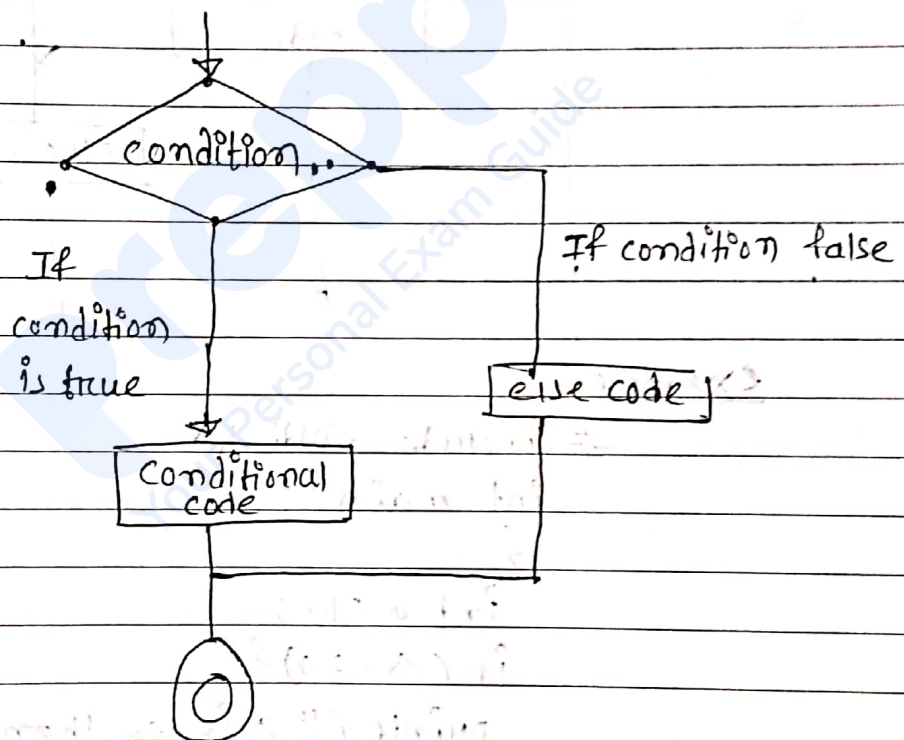 condition
If condition false
If
condition
is true
else code
Conditional
code
Prepp
Your Personal Exam Guide